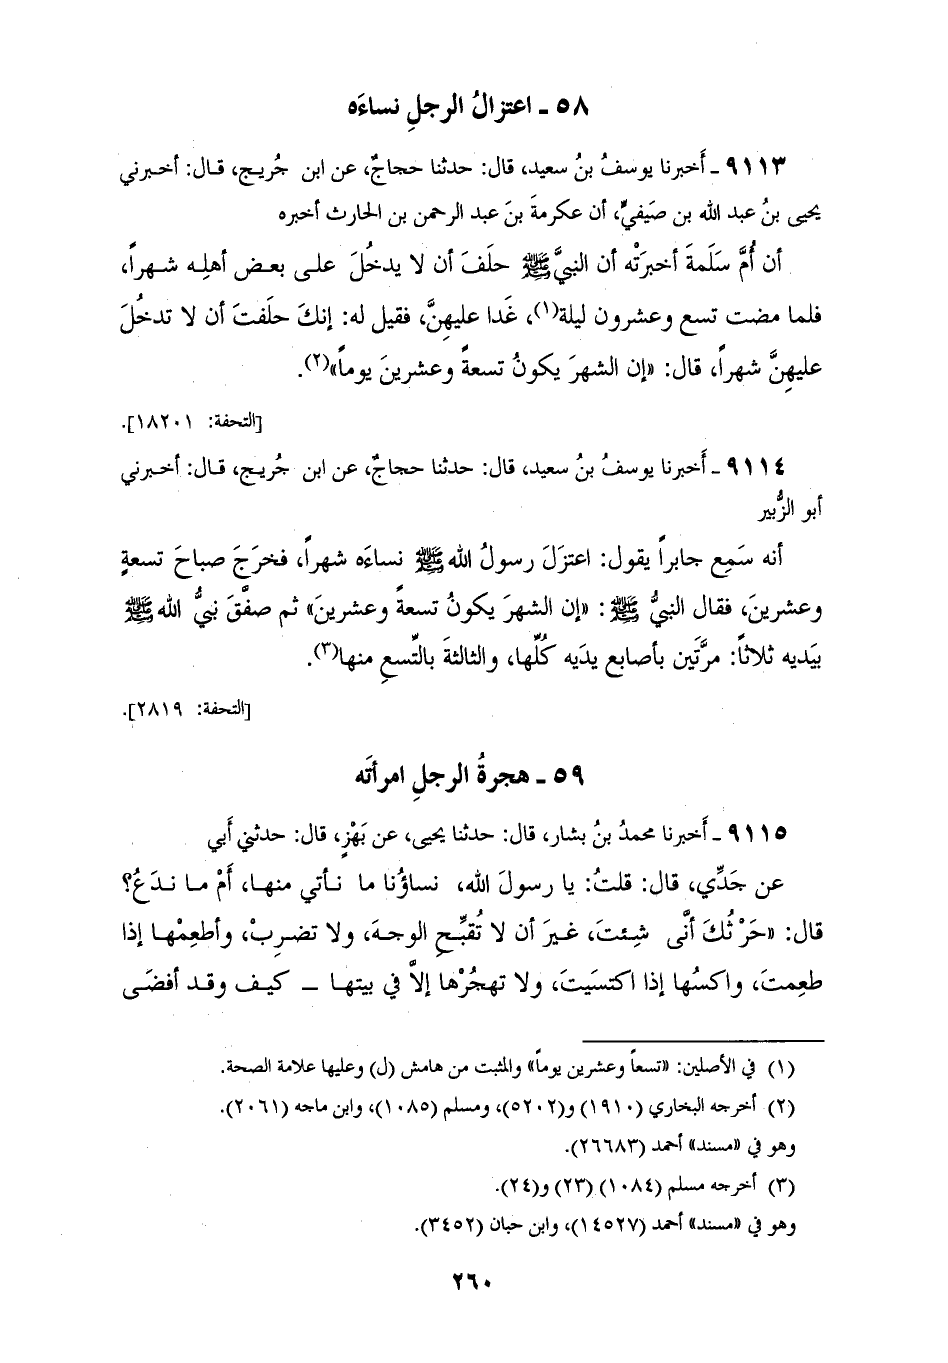 ٥٨ ـ اعتزالُ الرجلِ نساءَه
٩١١٣ ـ أَخبرنا يوسفُ بنُ سعيد، قال: حدثنا حجاجٌ، عن ابن جُريج، قال: أخبرني
يحيى بنُ عبد الله بن صَيفيٍّ، أن عكرمةَ بنَ عبد الرحمن بن الحارث أخبره
أن أُمَّ سَلَمة أخبرَتْه أن النبيَّ ﷺ حلَفَ أن لا يدخُلَ على بعض أهلِه شهراً،
فلما مضت تسع وعشرون ليلة(١)، غَدا عليهِنَّ، فقيل له: إنكَ حلَفتَ أن لا تدخُلَ
عليهِنَّ شهراً، قال: «إن الشهرَ يكونُ تسعةً وعشرينَ يوماً»(٢).
[التحفة: ١٨٢٠١].
٩١١٤ ـ أَخبرنا يوسفُ بنُ سعيد، قال: حدثنا حجاجٌ، عن ابن جُريج، قال: أخبرني
أبو الزُّبير
أنه سَمِع جابراً يقول: اعتزَلَ رسولُ الله ﷺ نساءَه شهراً، فخرَجَ صباحَ تسعةٍ
وعشرينَ، فقال النبيُّ ﷺ: «إن الشهرَ يكونُ تسعةً وعشرينَ» ثم صفَّقَ نبيُّ الله ﷺ
بيَديه ثلاثاً: مرَّتَين بأصابع يدَيه كُلِّها، والثالثةَ بالتِّسعِ منها(٣).
[التحفة: ٢٨١٩].
٥٩ ـ هجرةُ الرجلِ امرأتَه
٩١١٥ ـ أَخبرنا محمدُ بنُ بشار، قال: حدثنا يحيى، عن بَهْزٍ، قال: حدثني أَبي
عن جَدِّي، قال: قلتُ: يا رسولَ الله، نساؤُنا ما نأتي منها، أَمْ ما ندَعُ؟
قال: «حَرْثُكَ أنَّى شِئتَ، غيرَ أن لا تُقبِّحِ الوجهَ، ولا تضرِبْ، وأطعِمْها إذا
طعِمتَ، واكسُها إذا اكتسَيتَ، ولا تهجُرْها إلاَّ في بيتها ـ كيف وقد أفضَى
(١) في الأصلين: «تسعاً وعشرين يوماً» والمثبت من هامش (ل) وعليها علامة الصحة.
(٢) أخرجه البخاري (١٩١٠) و(٥٢٠٢)، ومسلم (١٠٨٥)، وابن ماجه (٢٠٦١).
وهو في «مسند» أحمد (٢٦٦٨٣).
(٣) أخرجه مسلم (١٠٨٤) (٢٣) و(٢٤).
وهو في «مسند» أحمد (١٤٥٢٧)، وابن حبان (٣٤٥٢).
٢٦٠